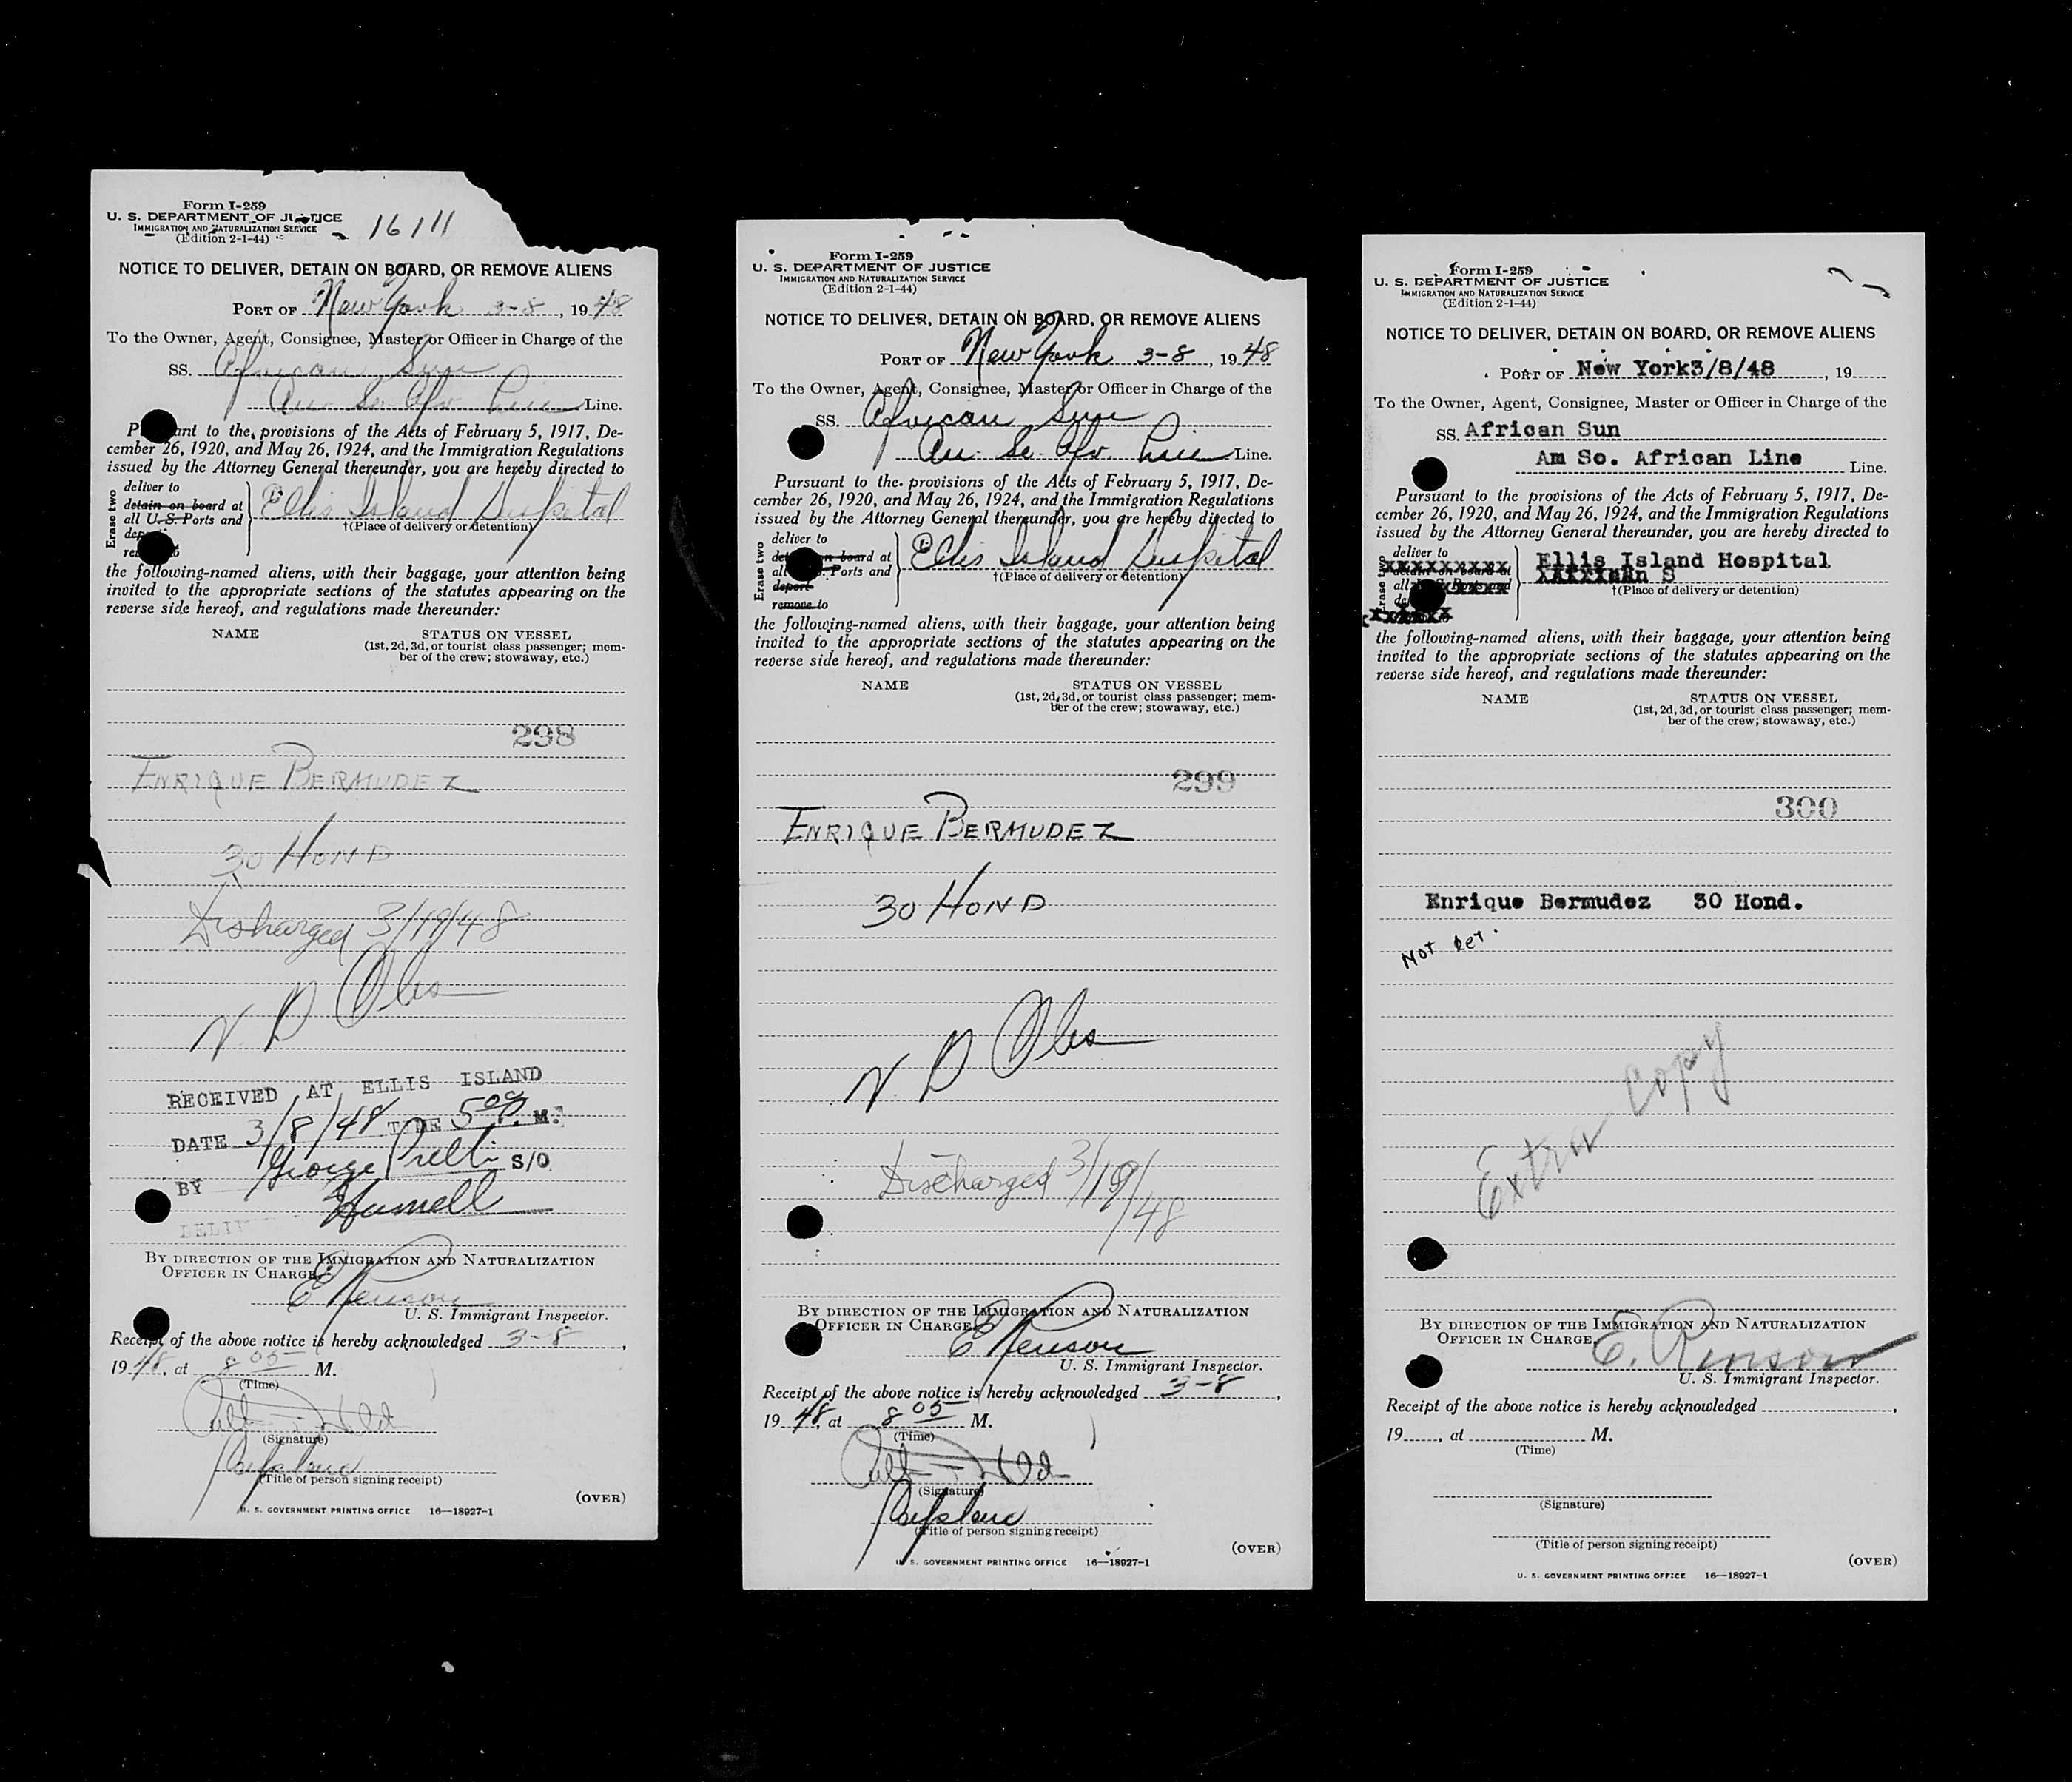 Form I-259
U. S. DEPARTMENT OF JUSTICE
IMMIGRATION AND NATURALIZATION SERVICE
(Edition 2-1-44)
16111
NOTICE TO DELIVER, DETAIN ON BOARD, OR REMOVE ALIENS
PORT OF New York 3-8, 1948
To the Owner, Agent, Consignee, Master or Officer in Charge of the
SS. African Sun
Am. So. Afr. Line Line.
Pursuant to the provisions of the Acts of February 5, 1917, De-
cember 26, 1920, and May 26, 1924, and the Immigration Regulations
issued by the Attorney General thereunder, you are hereby directed to
Erase two
deliver to
detain on board at
all U. S. Ports and
Ellis Island Hospital
†(Place of delivery or detention)
the following-named aliens, with their baggage, your attention being
invited to the appropriate sections of the statutes appearing on the
reverse side hereof, and regulations made thereunder:
NAME STATUS ON VESSEL
(1st, 2d, 3d, or tourist class passenger; mem-
ber of the crew; stowaway, etc.)
298
ENRIQUE BERMUDEZ
30 HOND
Discharged 3/19/48
N. D
RECEIVED AT ELLIS ISLAND
DATE 3/8/48 TIME 5 00 P. M.
George S/O
BY
By DIRECTION OF THE IMMIGRATION AND NATURALIZATION
OFFICER IN CHARGE:
E Renson
U. S. Immigrant Inspector.
Receipt of the above notice is hereby acknowledged 3-8,
1948, at 8 05 M.
(Time)
(Signature)
(Title of person signing receipt)
(OVER)
U. S. GOVERNMENT PRINTING OFFICE 16—18927-1
Form I-259
U. S. DEPARTMENT OF JUSTICE
IMMIGRATION AND NATURALIZATION SERVICE
(Edition 2-1-44)
NOTICE TO DELIVER, DETAIN ON BOARD, OR REMOVE ALIENS
PORT OF New York 3-8, 1948
To the Owner, Agent, Consignee, Master or Officer in Charge of the
SS. African Sun
Am. So. Afr. Line Line.
Pursuant to the provisions of the Acts of February 5, 1917, De-
cember 26, 1920, and May 26, 1924, and the Immigration Regulations
issued by the Attorney General thereunder, you are hereby directed to
Erase two
deliver to
detain on board at
all U. S. Ports and
deport
remove to
Ellis Island Hospital
†(Place of delivery or detention)
the following-named aliens, with their baggage, your attention being
invited to the appropriate sections of the statutes appearing on the
reverse side hereof, and regulations made thereunder:
NAME STATUS ON VESSEL
(1st, 2d, 3d, or tourist class passenger; mem-
ber of the crew; stowaway, etc.)
299
ENRIQUE BERMUDEZ
30 HOND
N. D
Discharged 3/19/48
By DIRECTION OF THE IMMIGRATION AND NATURALIZATION
OFFICER IN CHARGE
E Renson
U. S. Immigrant Inspector.
Receipt of the above notice is hereby acknowledged 3-8,
1948, at 8 05 M.
(Time)
(Signature)
(Title of person signing receipt)
(OVER)
U. S. GOVERNMENT PRINTING OFFICE 16—18927-1
Form I-259
U. S. DEPARTMENT OF JUSTICE
IMMIGRATION AND NATURALIZATION SERVICE
(Edition 2-1-44)
NOTICE TO DELIVER, DETAIN ON BOARD, OR REMOVE ALIENS
PORT OF New York3/8/48, 19
To the Owner, Agent, Consignee, Master or Officer in Charge of the
SS. African Sun
Am So. African Line Line.
Pursuant to the provisions of the Acts of February 5, 1917, De-
cember 26, 1920, and May 26, 1924, and the Immigration Regulations
issued by the Attorney General thereunder, you are hereby directed to
Erase two
deliver to
Ellis Island Hospital
†(Place of delivery or detention)
the following-named aliens, with their baggage, your attention being
invited to the appropriate sections of the statutes appearing on the
reverse side hereof, and regulations made thereunder:
NAME STATUS ON VESSEL
(1st, 2d, 3d, or tourist class passenger; mem-
ber of the crew; stowaway, etc.)
300
Enrique Bermudez 30 Hond.
Not Det.
Extra Copy
By DIRECTION OF THE IMMIGRATION AND NATURALIZATION
OFFICER IN CHARGE
E. Renson
U. S. Immigrant Inspector.
Receipt of the above notice is hereby acknowledged ,
19 , at M.
(Time)
(Signature)
(Title of person signing receipt)
(OVER)
U. S. GOVERNMENT PRINTING OFFICE 16—18927-1